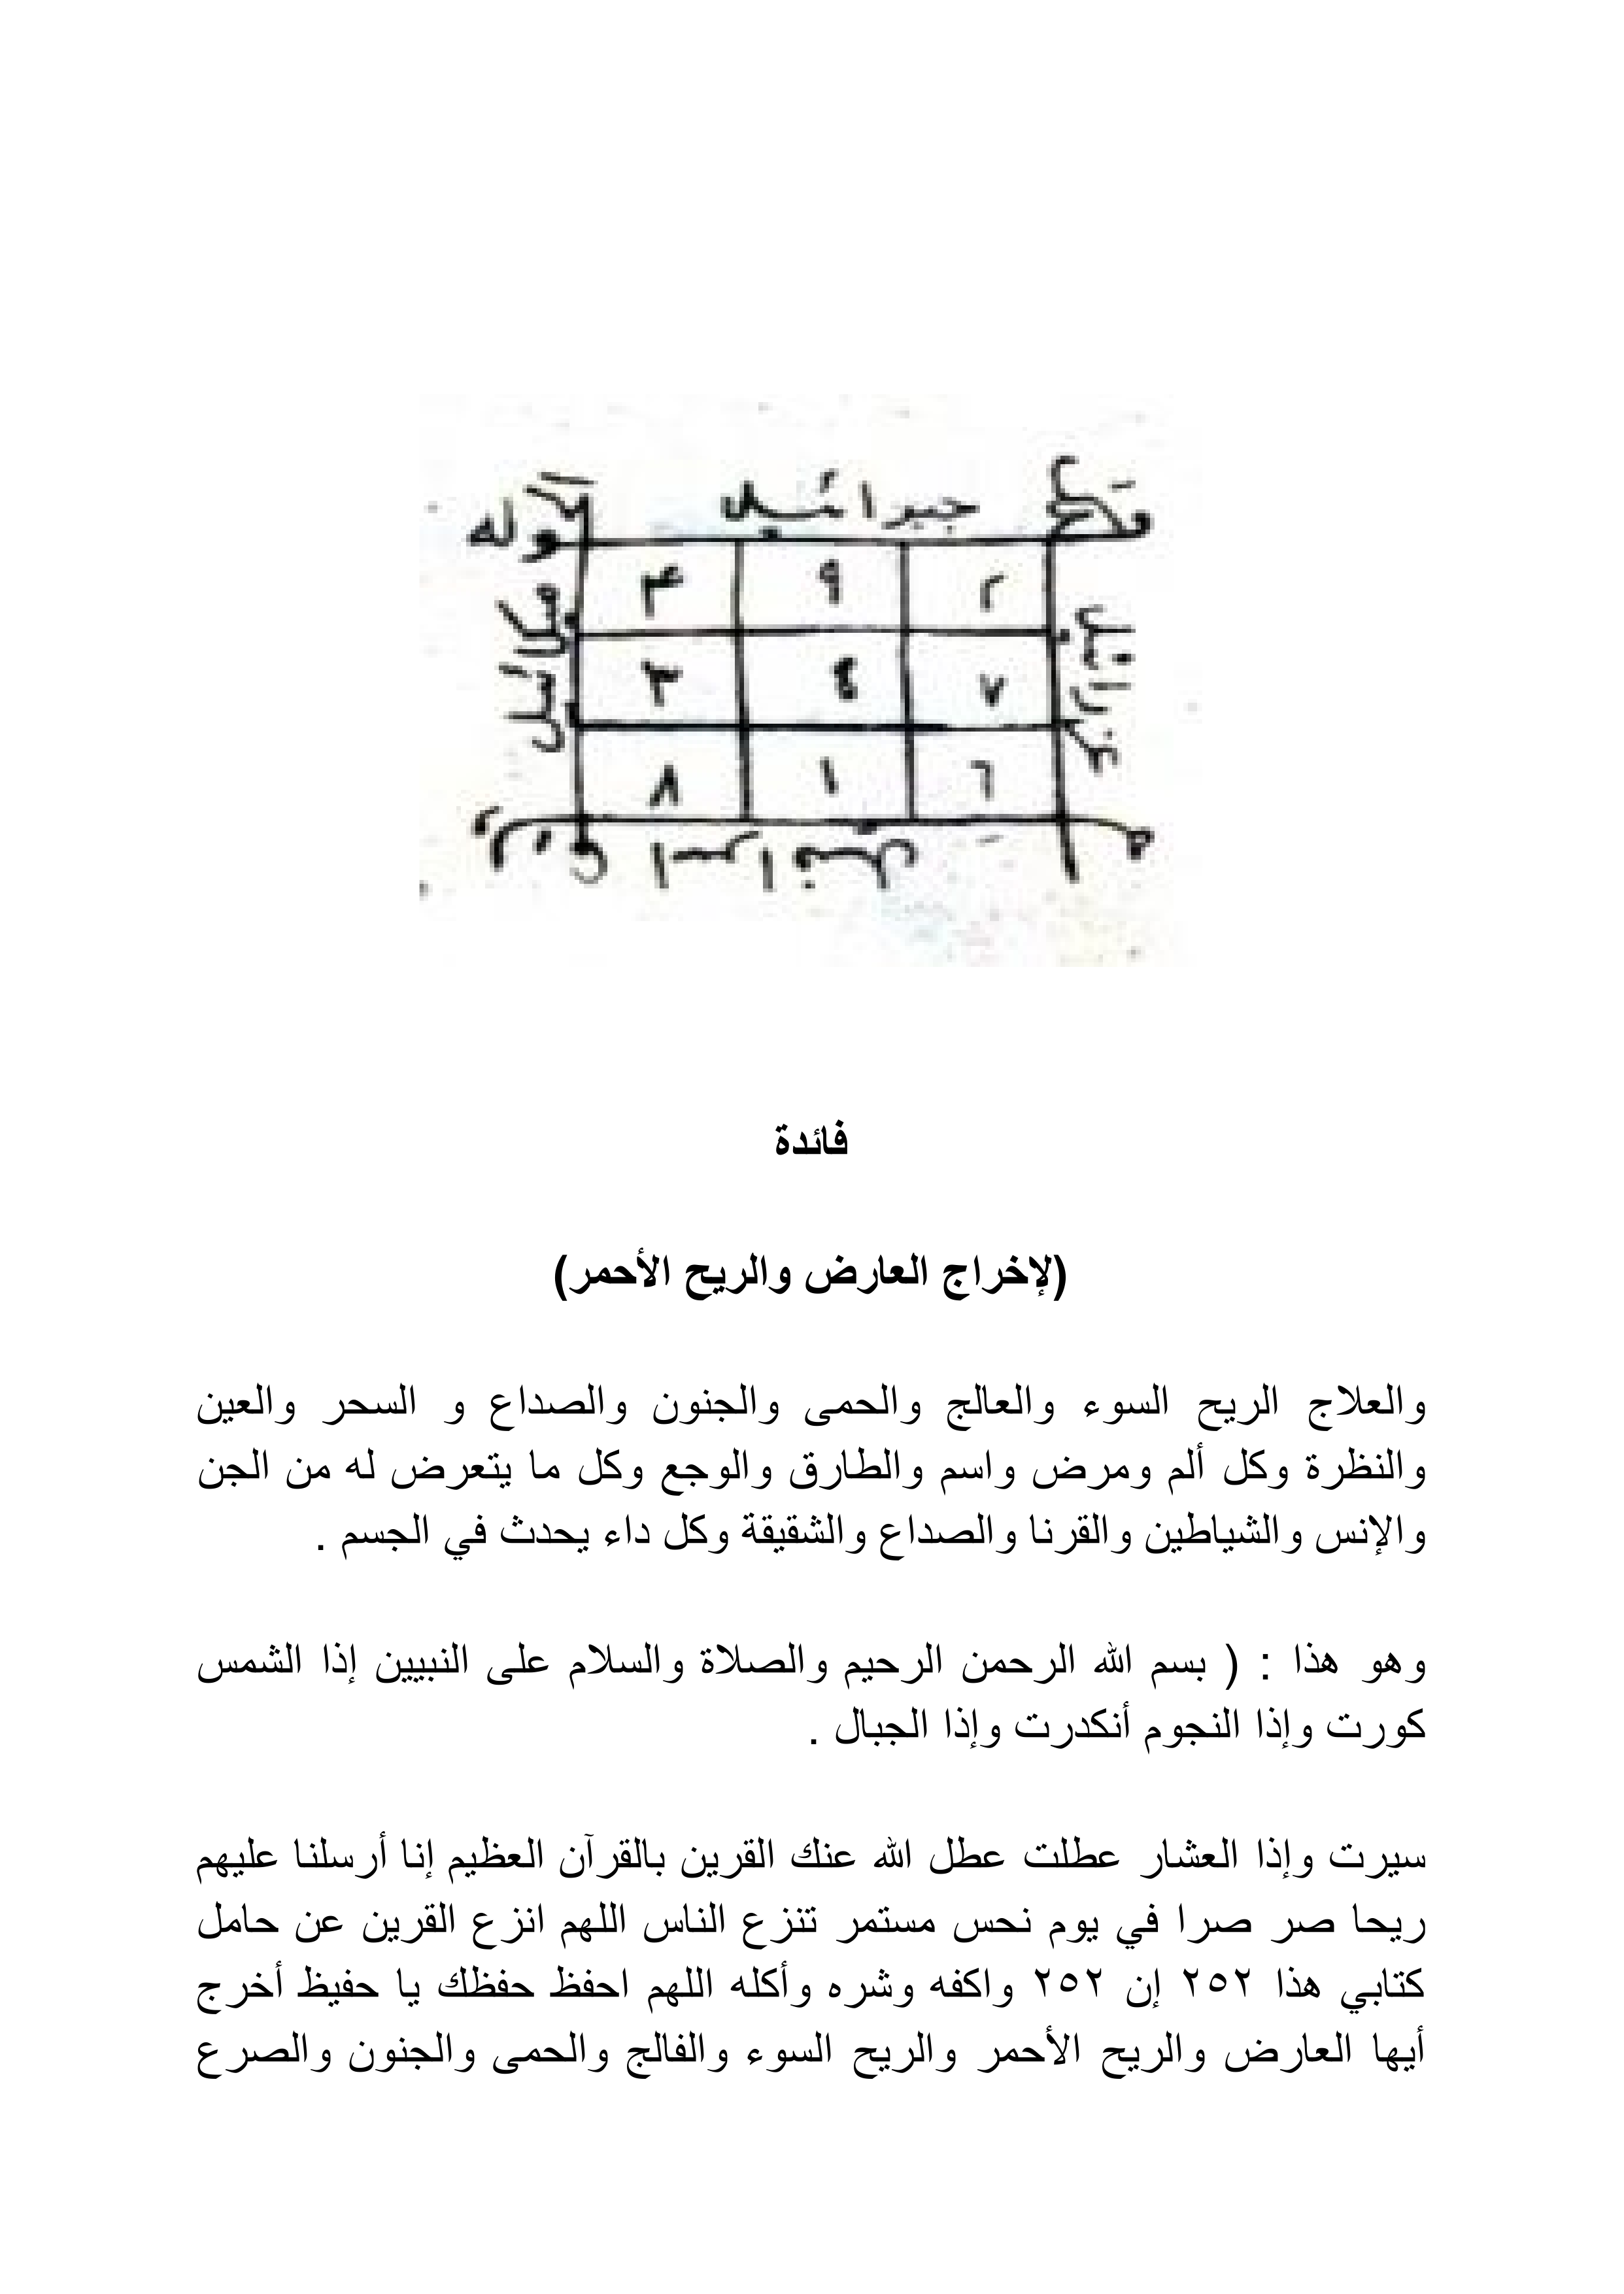 قوله جبرائيل الحق
٤ ٩ ٢
٣ ٥ ٧
٨ ١ ٦
ميكائيل
عزرائيل
اسرافيل
فائدة
(لإخراج العارض والريح الأحمر)
والعلاج الريح السوء والعالج والحمى والجنون والصداع و السحر والعين
والنظرة وكل ألم ومرض واسم والطارق والوجع وكل ما يتعرض له من الجن
والإنس والشياطين والقرنا والصداع والشقيقة وكل داء يحدث في الجسم .
وهو هذا : ( بسم الله الرحمن الرحيم والصلاة والسلام على النبيين إذا الشمس
كورت وإذا النجوم أنكدرت وإذا الجبال .
سيرت وإذا العشار عطلت عطل الله عنك القرين بالقرآن العظيم إنا أرسلنا عليهم
ريحا صر صرا في يوم نحس مستمر تنزع الناس اللهم انزع القرين عن حامل
كتابي هذا ٢٥٢ إن ٢٥٢ واكفه وشره وأكله اللهم احفظ حفظك يا حفيظ أخرج
أيها العارض والريح الأحمر والريح السوء والفالج والحمى والجنون والصرع